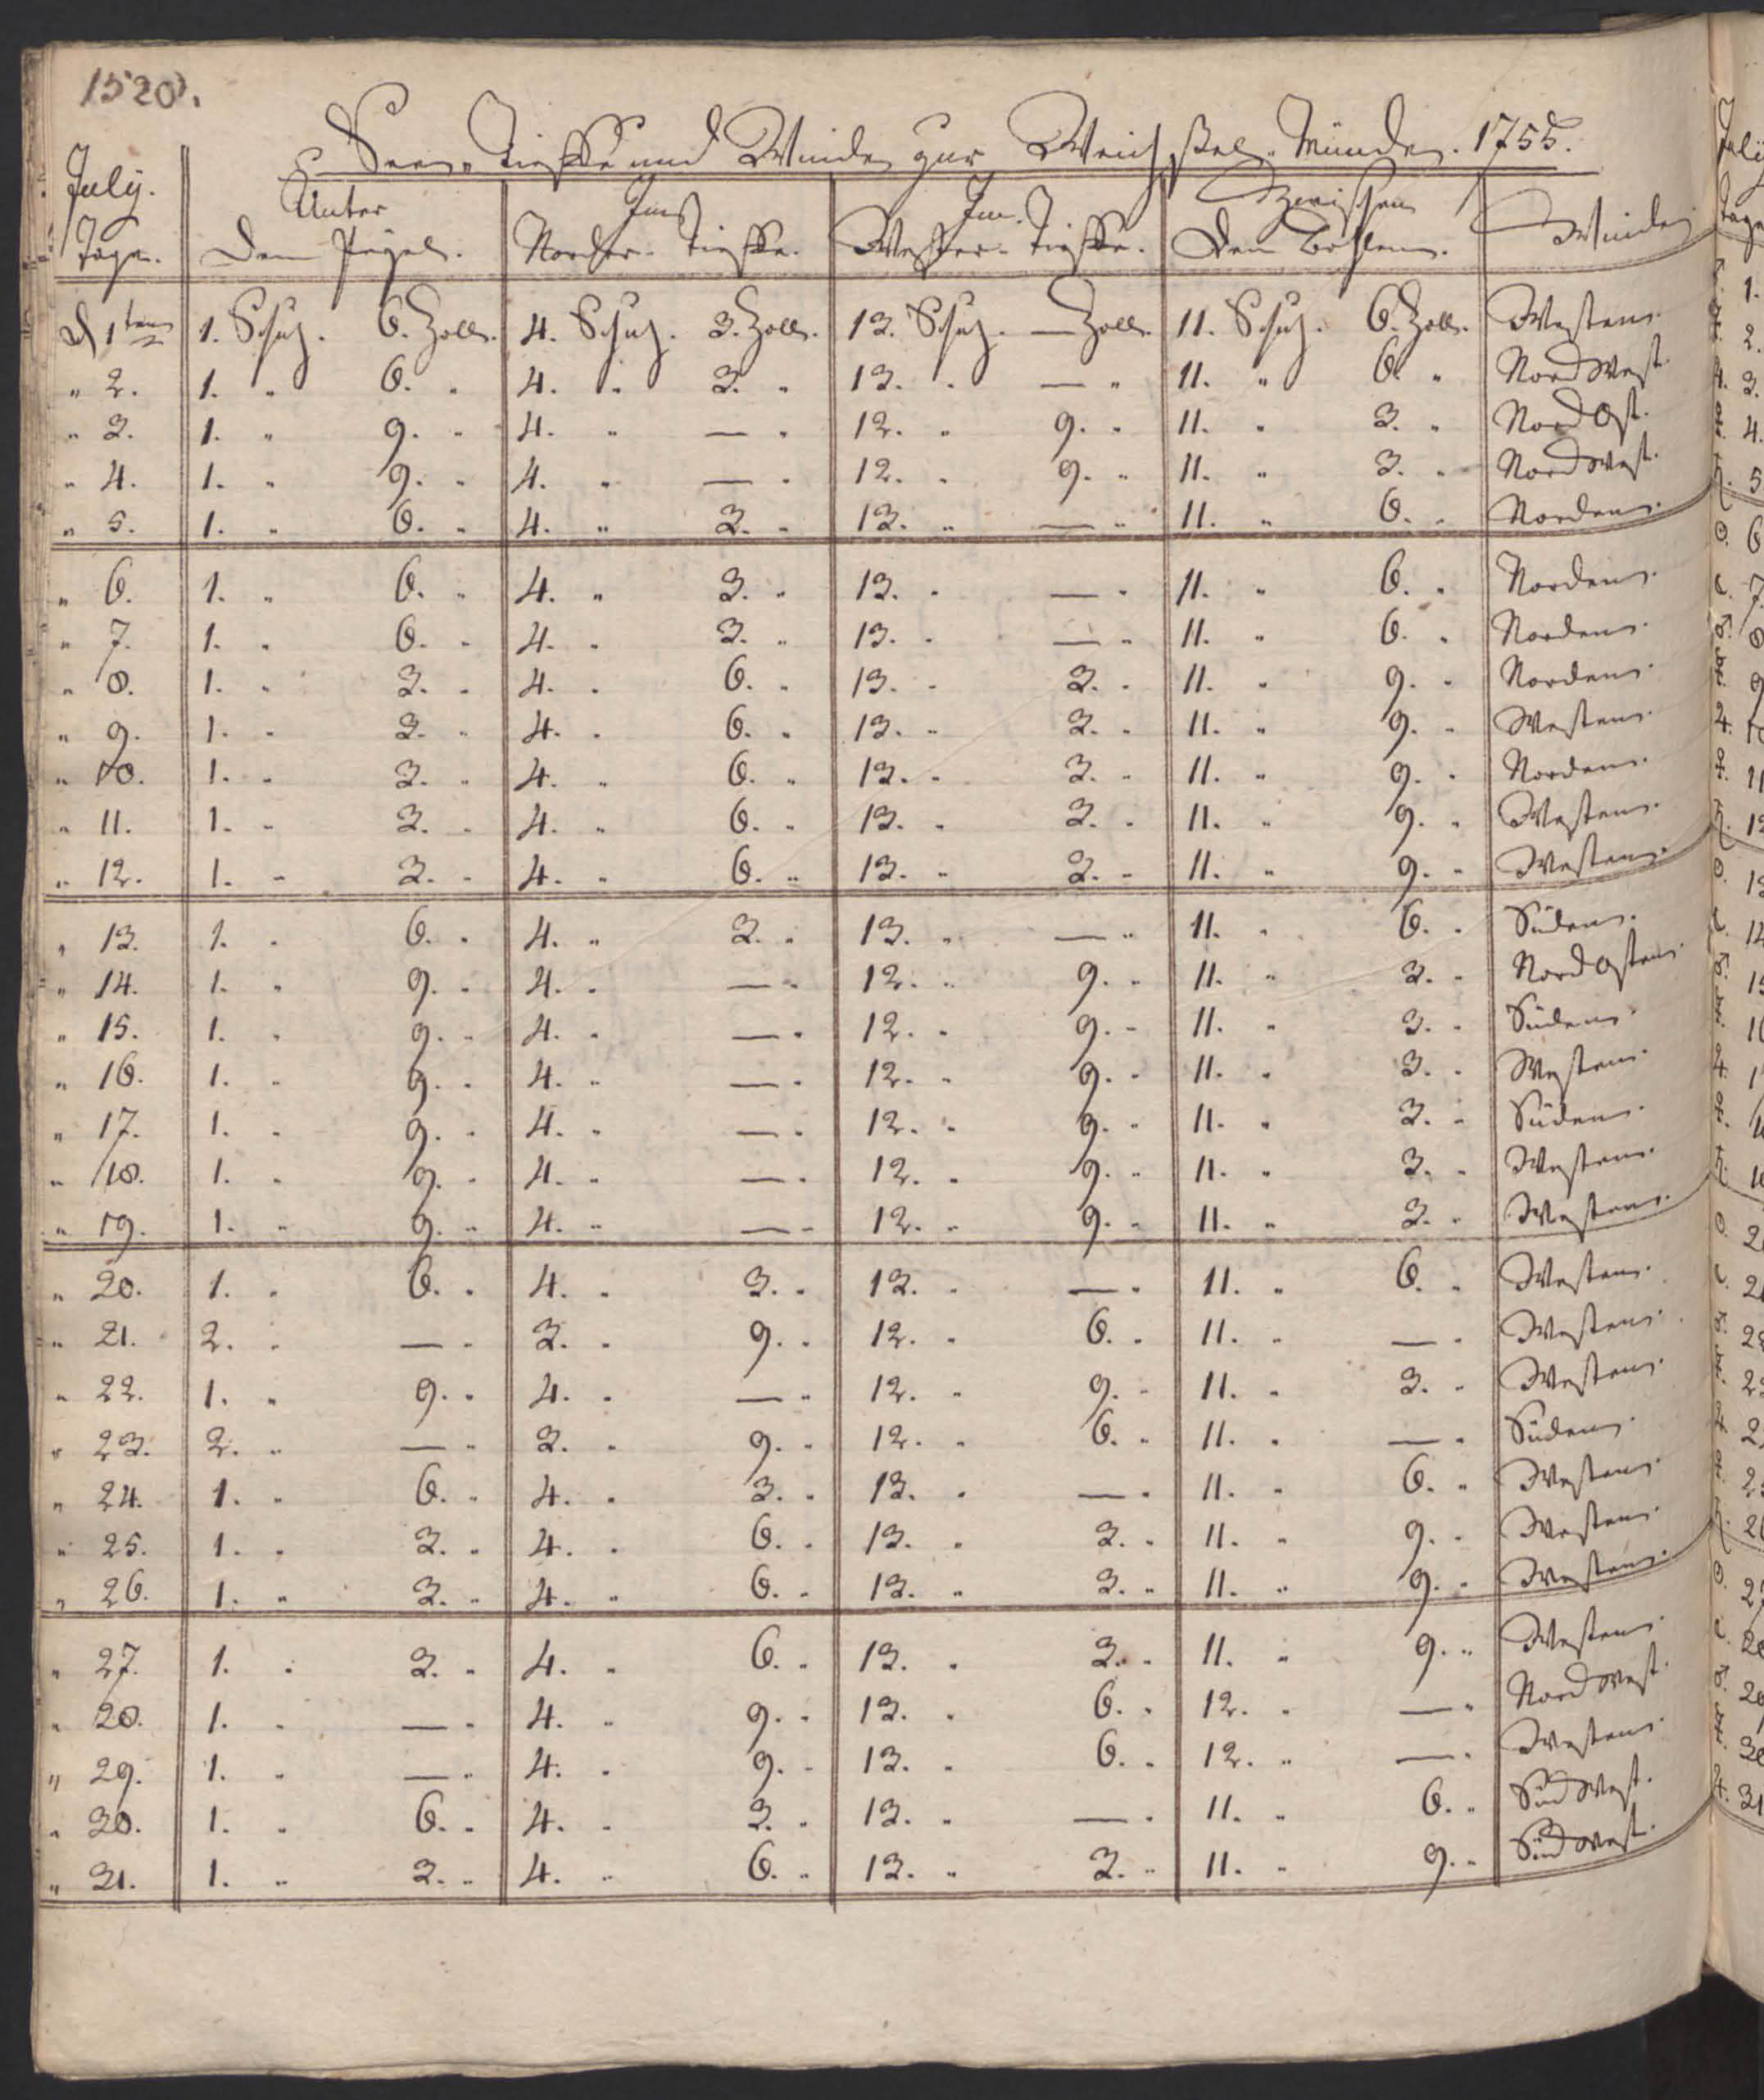 1528.
Seen, Tieffe und Winde zur Weichßel-Münde. 1755.
July. Unter Im Im Zwischen
Tage. Dem Pegel. Norder-Tieffe. Wester-Tieffe. Den Bohlen. Winde
D 1ten 1. Schuh. 6. Zoll. 4. Schuh. 3. Zoll. 13. Schuh. — Zoll. 11. Schuh. 6. Zoll. Westen.
" 2. 1. " 6. " 4. " 3. " 13. " — " 11. " 6. " NordWest.
" 3. 1. " 9. " 4. " — " 12. " 9. " 11. " 3. " NordOst.
" 4. 1. " 9. " 4. " — " 12. " 9. " 11. " 3. " NordWest.
" 5. 1. " 6. " 4. " 3. " 13. " — " 11. " 6. " Norden.
" 6. 1. " 6. " 4. " 3. " 13. " — " 11. " 6. " Norden.
" 7. 1. " 6. " 4. " 3. " 13. " — " 11. " 6. " Norden.
" 8. 1. " 3. " 4. " 6. " 13. " 3. " 11. " 9. " Norden.
" 9. 1. " 3. " 4. " 6. " 13. " 3. " 11. " 9. " Westen.
" 10. 1. " 3. " 4. " 6. " 13. " 3. " 11. " 9. " Norden.
" 11. 1. " 3. " 4. " 6. " 13. " 3. " 11. " 9. " Westen.
" 12. 1. " 3. " 4. " 6. " 13. " 3. " 11. " 9. " Westen.
" 13. 1. " 6. " 4. " 3. " 13. " — " 11. " 6. " Süden.
" 14. 1. " 9. " 4. " — " 12. " 9. " 11. " 3. " NordOsten
" 15. 1. " 9. " 4. " — " 12. " 9. " 11. " 3. " Süden.
" 16. 1. " 9. " 4. " — " 12. " 9. " 11. " 3. " Westen.
" 17. 1. " 9. " 4. " — " 12. " 9. " 11. " 3. " Süden.
" 18. 1. " 9. " 4. " — " 12. " 9. " 11. " 3. " Westen.
" 19. 1. " 9. " 4. " — " 12. " 9. " 11. " 3. " Westen.
" 20. 1. " 6. " 4. " 3. " 13. " — " 11. " 6. " Westen.
" 21. 2. " — " 3. " 9. " 12. " 6. " 11. " — " Westen.
" 22. 1. " 9. " 4. " — " 12. " 9. " 11. " 3. " Westen.
" 23. 2. " — " 3. " 9. " 12. " 6. " 11. " — " Süden.
" 24. 1. " 6. " 4. " 3. " 13. " — " 11. " 6. " Westen.
" 25. 1. " 3. " 4. " 6. " 13. " 3. " 11. " 9. " Westen.
" 26. 1. " 3. " 4. " 6. " 13. " 3. " 11. " 9. " Westen.
" 27. 1. " 3. " 4. " 6. " 13. " 3. " 11. " 9. " Westen.
" 28. 1. " — " 4. " 9. " 13. " 6. " 12. " — " NordWest.
" 29. 1. " — " 4. " 9. " 13. " 6. " 12. " — " Westen.
" 30. 1. " 6. " 4. " 3. " 13. " — " 11. " 6. " SüdWest.
" 31. 1. " 3. " 4. " 6. " 13. " 3. " 11. " 9. " SüdWest.